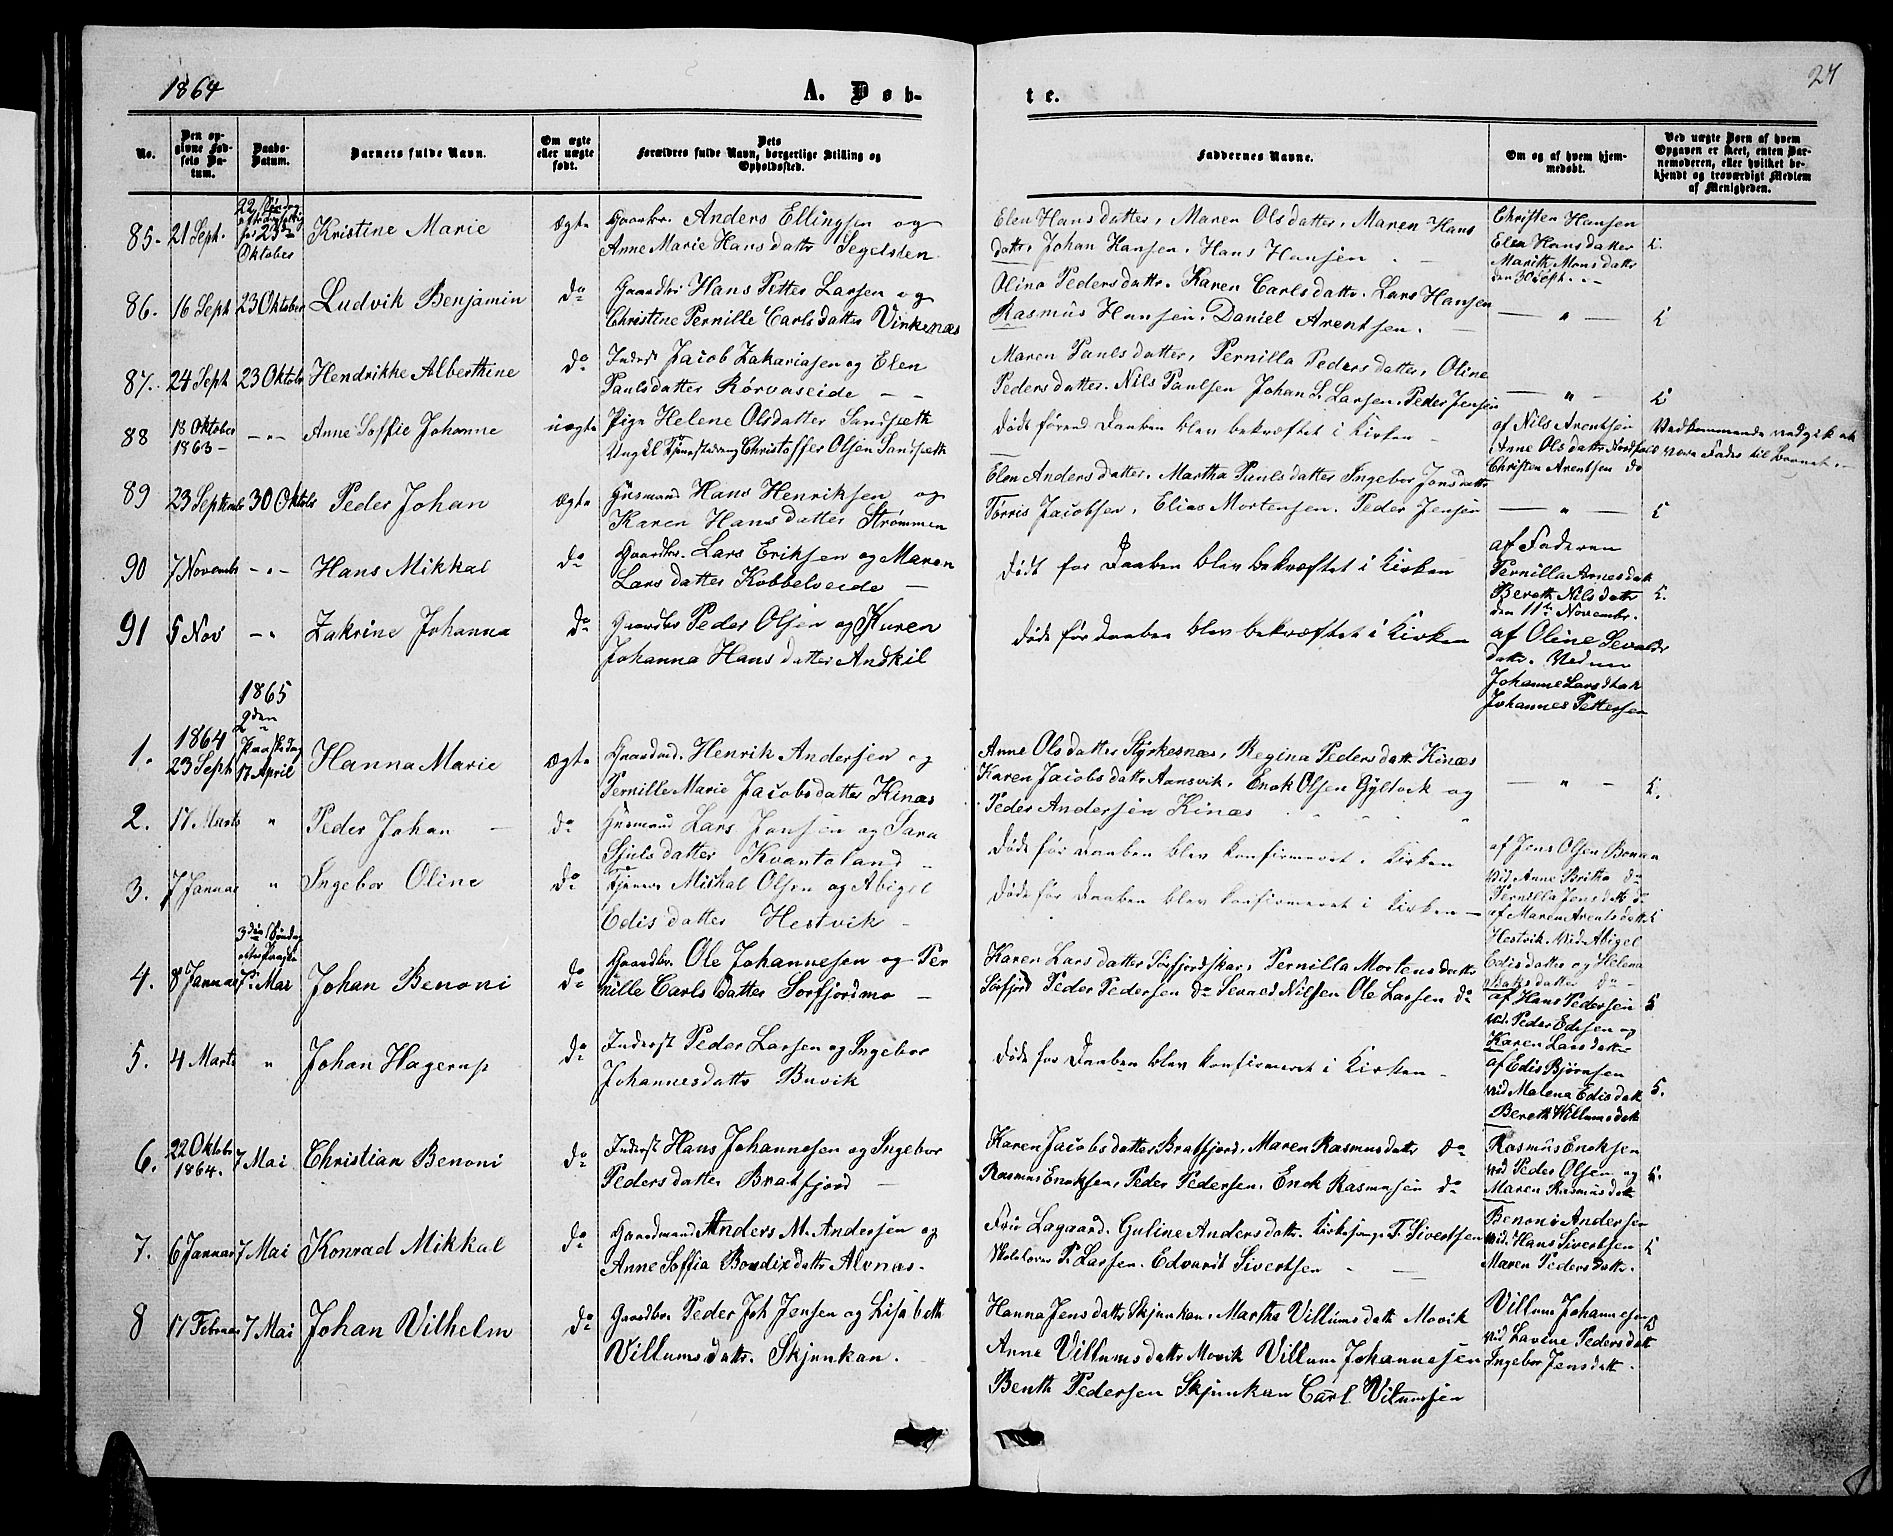 1864
A. Døb-
te.
27
No.
Den opgivne Fødsels Datum.
Daabs-Datum.
Barnets fulde Navn.
Om ægte eller uægte født.
Dets Forældres fulde Navn, borgerlige Stilling og Opholdssted.
Faddernes Navne.
Om og af hvem hjemmedøbt.
Ved uægte Børn af hvem Opgaven er skeet, enten Barnemoderen, eller hvilket bekjendt og troværdigt Medlem af Menigheden.
85. 21 Sept. 22 Søndag 23de Oktober Kristine Marie ægte Gaardbr. Anders Ellingsen og
Anne Marie Hansdatter Segelsten
Elen Hansdatter, Maren Olsdatter, Maren Hans
datter, Johan Hansen, Hans Hansen.
Christen Hansen
Elen Hansdatter
Marith Monsdatter
den 30 Sept.
86. 16 Sept 23 Oktober Ludvik Benjamin do Gaardbr Hans Petter Larsen og
Christine Pernille Carlsdatter Vinkenæs
Olina Pedersdatter. Karen Carlsdatter. Lars Hansen
Rasmus Hansen. Daniel Arentsen. — " —
87. 24 Sept 23 Oktobr Hendrikke Alberthine do Inderst Jacob Zakariasen og Elen
Paulsdatter Rørvaseide
Maren Paulsdatter, Pernilla Pedersdatter, Oline
Pedersdatter. Nils Paulsen Johan L. Larsen. Peder Jensen — " —
88 18 Oktober 1863 — " — Anne Soffie Johanne uægte Pige Helene Olsdatter Sandsæth
Ungkl Tjenestedreng Christoffer Olsen Sandsæth
døde førend Daaben blev bekræftet i Kirken
af Nils Arentsen
Anne Olsdatter Nordfjord
Christen Arentsen do
Vedkommende vedgik at
være Fader til Barnet.
89 23 Septembr 30 Oktobr Peder Johan ægte Husmand Hans Henriksen og
Karen Hansdatter Strømmen
Elen Andersdatter. Martha Paulsdatter Ingebor Jonsdatter
Tørris Jacobsen, Elias Mortensen. Peder Jensen — " —
90 7 Novembr — " — Hans Mikkal do Gaardbr. Lars Eriksen og Maren
Larsdatter Kobbelveide —
Død før Daaben blev bekræftet i Kirken
af Faderen
Pernilla Arnesdatt
Bereth Nilsdatter
den 11te November.
91 5 Nov — " Zakrine Johanna do Gaardbr Peder Olsen og Karen
Johanna Hansdatter Andkil
døde før Daaben blev bekræftet i Kirken
af Oline Sevalds
datter. Vidner
Johanne Larsdatt
Johannes Pettersen
1865
1. 1864 23 Sept 2den Paaskedag 17 April Hanna Marie ægte Gaardmd. Henrik Andersen og
Pernille Marie Jacobsdatter Kinæs
Anne Olsdatter Styrkesnæs, Regina Pedersdatt Kinæs
Karen Jacobsdatter Aansvik, Enok Olsen Gyltvik og
Peder Andersen Kinæs — " —
2. 17 Marts " Peder Johan — do Husmand Lars Jonsen og Sara
Sjulsdatter Kvantoland —
Døde før Daaben blev konfirmeret i Kirken
af Jens Olsen Bonaa
Vid Anne Britha do
Pernilla Jensdatt do
3. 7 Januar " Ingebor Oline do Tjener Mikal Olsen og Abigel
Edisdatter Hestvik —
døde før Daaben blev konfirmeret i Kirken —
af Maren Arentsdatter
Hestvik Vid. Abigel
Edisdatter og Helena
4. 8 Januar 3die Søndag efter Paaske 7de Mai Johan Benoni do Gaardbr. Ole Johannesen og Per
nille Carlsdatter Sørfjordmo —
Karen Larsdatter Sørfjordskar, Pernilla Mortensdatter
Sørfjord Peder Pedersen do Sevald Nilsen Ole Larsen do
af Hans Pedersen
vid. Peder Edisen og
Karen Larsdatter
5. 4 Marts " Johan Hagerup do Inderst Peder Larsen og Ingebor
Johannesdatter Buvik
døde før Daaben blev konfirmeret i Kirken
af Edis Bjørnsen
vid Malena Edisdatt
Bereth Willumsdatt
6. 22 Oktobr 1864. 7 Mai Christian Benoni do Inderst Hans Johannesen og Ingebor
Pedersdatter Bratfjord —
Karen Jacobsdatter Bratfjord. Maren Rasmusdatter do
Rasmus Enoksen, Peder Pedersen. Enok Rasmusen do
Rasmus Enoksen
vid Peder Olsen og
Maren Rasmusdatt
7. 6 Januar 7 Mai Konrad Mikkal do Gaardmand Anders M. Andersen og
Anne Soffia Bendixdatter Alvnæs.
Frue Lagaard. Guline Andersdatter. Kirkesanger T. Sivertsen
P. Larsen. Edvardt Sivertsen
Benoni Andersen
vid. Hans Sivertsen
Maren Pedersdatter.
8 17 Februar 7 Mai Johan Vilhelm do Gaardbr. Peder Joh Jensen og Lisabeth
Villumsdatter. Skjunkan.
Hanna Jensdatter Skjunkan. Martha Villumsdatt Movik
Anne Villumsdatter Movik Villum Johannesen
Benth Pedersen Skjunkan Carl Vilumsen
Villum Johannesen
vid Lavine Pedersdatt
Ingebor Jensdatt.